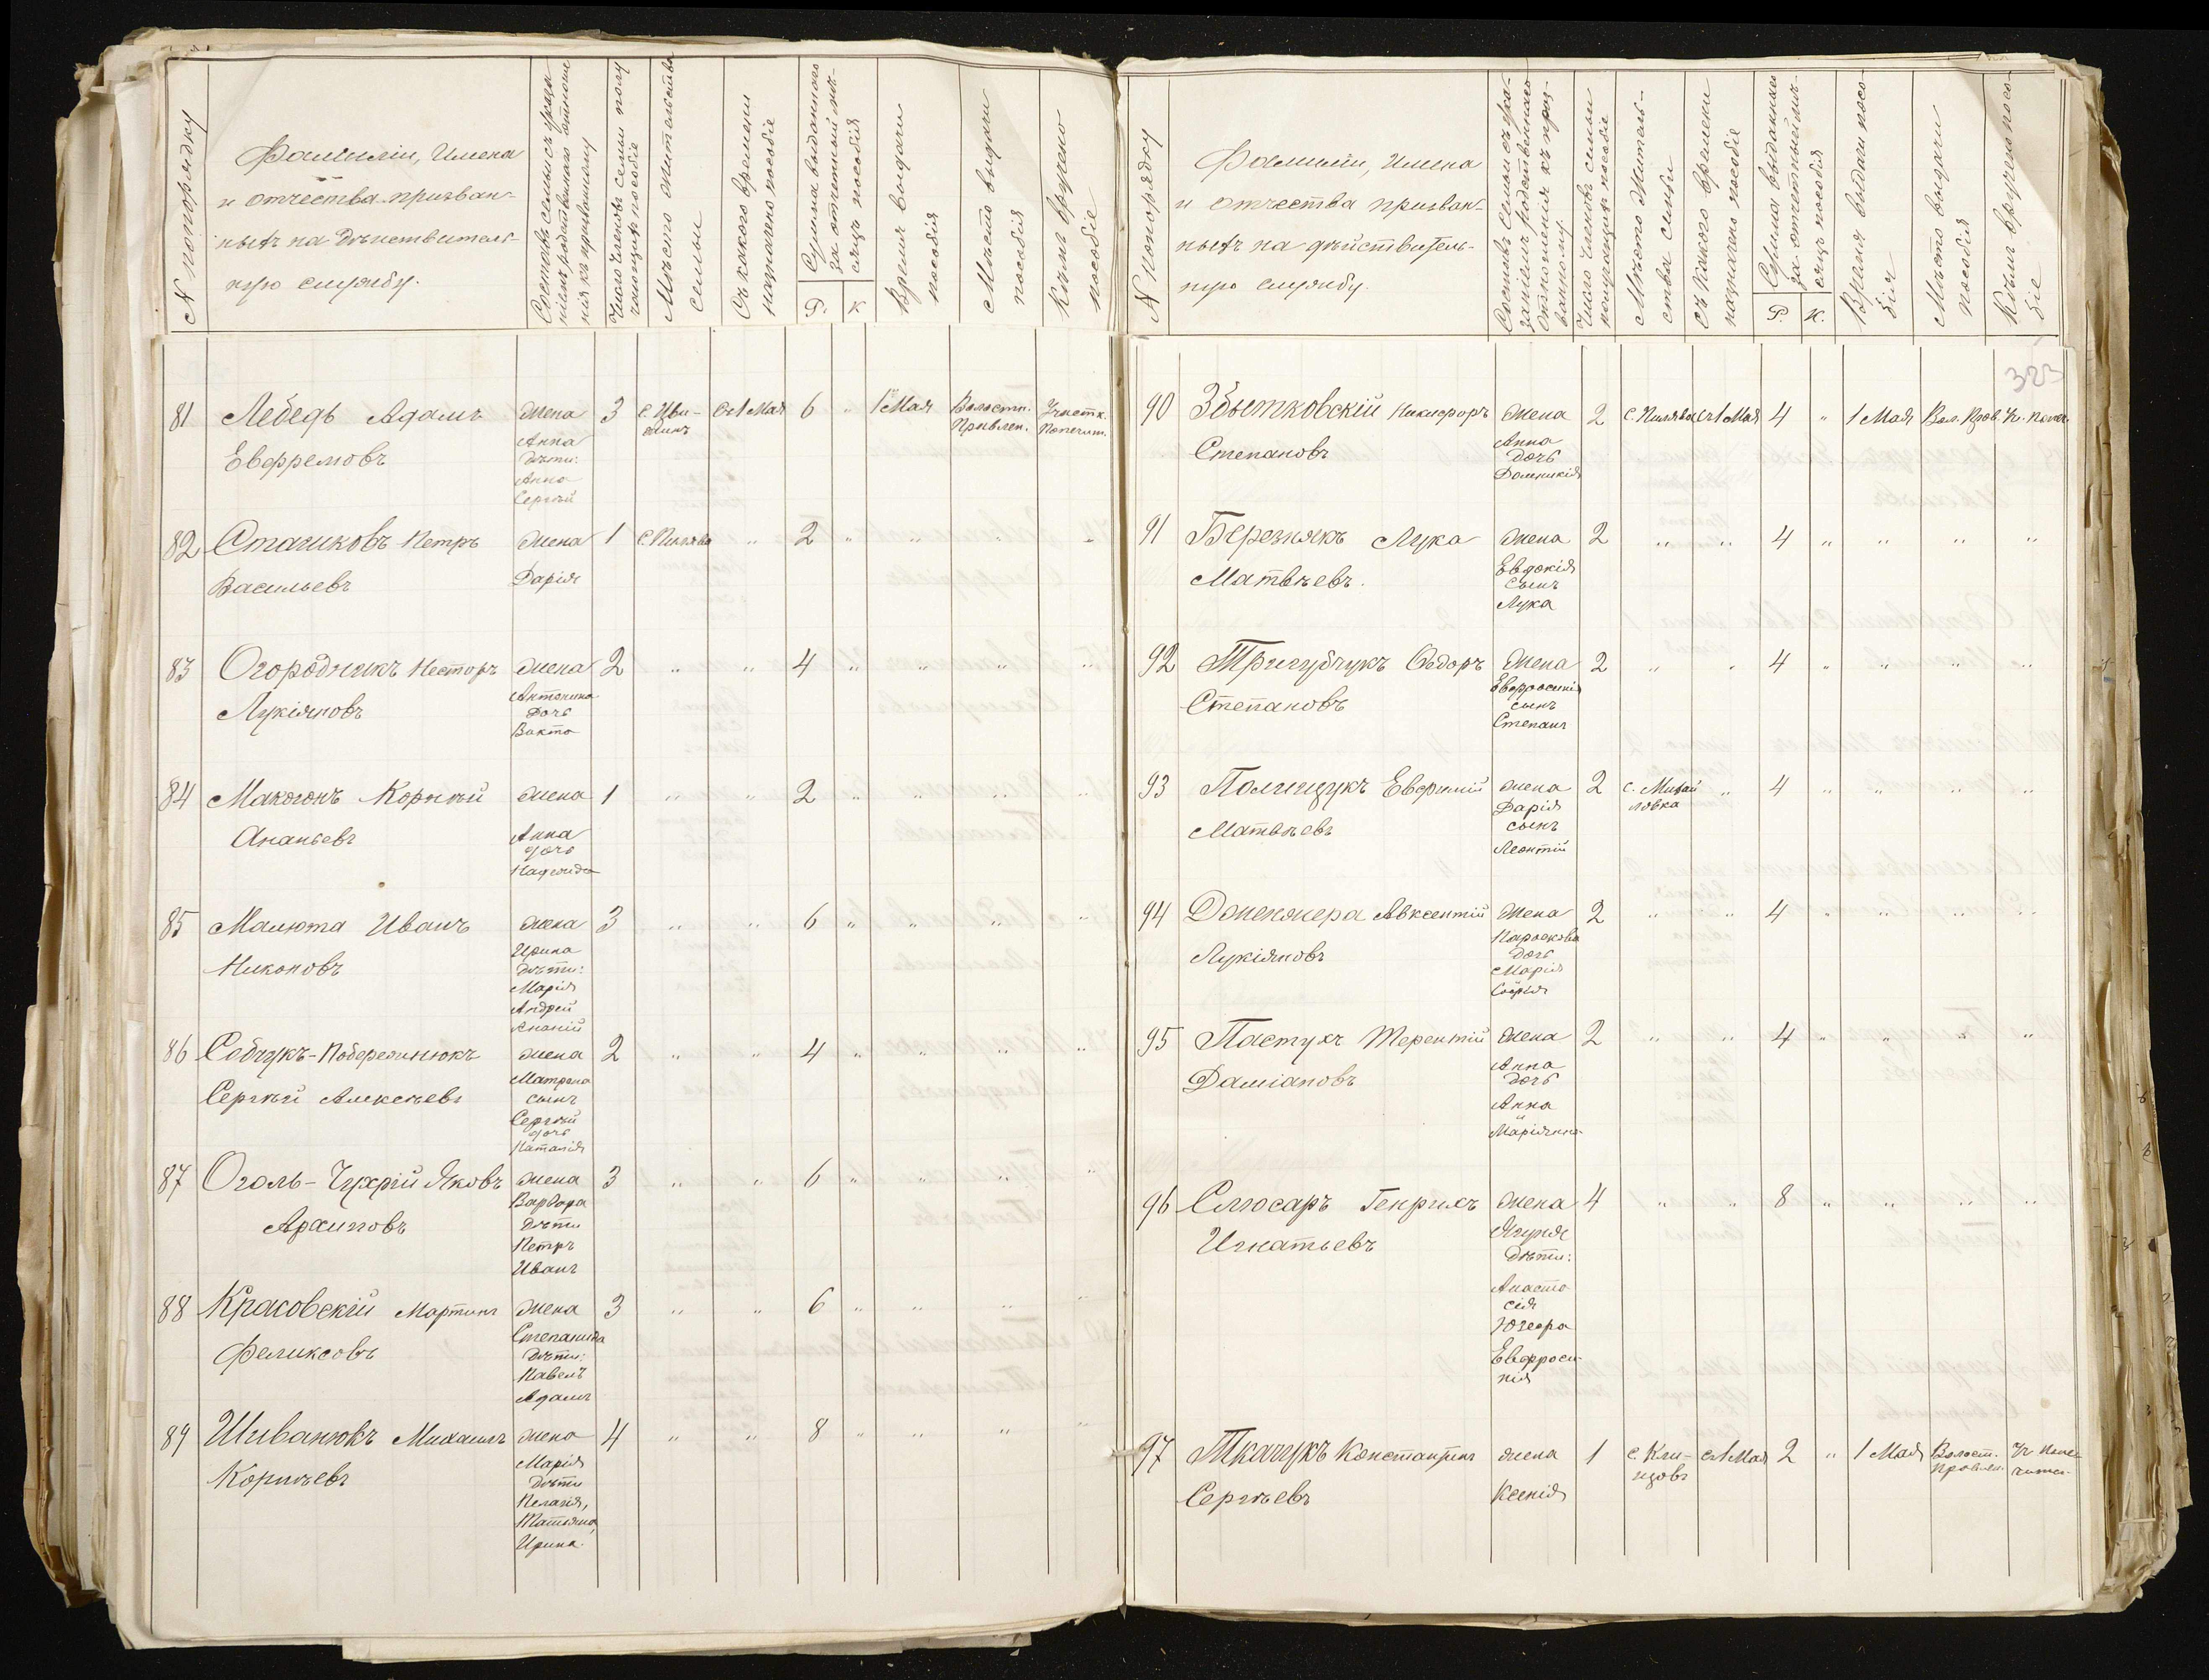 № по порядку
Фамиліи, Имена
и отчества призван-
ныхъ на дѣйствитель-
ную службу.
Составъ семьи съ указа-
ніемъ родственнаго отноше
нія къ призванному
Число членовъ семьи полу
чающихъ пособіе
Мѣсто жительства
семьи
Съ какого времени
назначено пособіе
Сумма выданнаго
за отчетный мѣ-
сяцъ пособія
Р.
К
Время выдачи
пособія
Мѣсто выдачи
пособія
Кѣмъ вручено
пособіе
81 Лебедь Адамъ жена 3 с. Иви- Съ 1 Мая 6 " 1 Мая Волостн. Участк.
жинъ Правлен. Попечит.
Евфремовъ
Анна
дѣти:
Анна
Сергѣй
82 Стачиковъ Петръ жена 1 с. Пилява " 2 " " " "
Васильевъ Дарія
83 Огородникъ Несторъ жена 2 " " 4 " " " "
Лукіяновъ
Антонина
дочь
Викто
84 Макогонъ Корнѣй жена 1 " " 2 " " " "
Ананьевъ
Анна
дочь
85 Малюта Иванъ жена 3 " " 6 " " " "
Никоновъ
Ирина
дѣти:
Марія
Андрей
Ананій
86 Собчукъ-Побережнюкъ жена 2 " " 4 " " " "
Сергѣй Алексѣевъ
Матрена
сынъ
Сергѣй
дочь
Наталія
87 Оголь-Чухрій Яковъ жена 3 " " 6 " " " "
Архиповъ
Варвара
дѣти
Петръ
Иванъ
88 Краковскій Мартинъ жена 3 " " 6 " " " "
Феликсовъ
Степанида
дѣти:
Павелъ
Адамъ
89 Шиванюкъ Михаилъ жена 4 " " 8 " " " "
Корнѣевъ
Марія
дѣти
Пелагія,
Татьяна,
Ирина.
№ по порядку
Фамиліи, Имена
и отчества призван-
ныхъ на дѣйствитель-
ную службу.
Составъ семьи съ ука-
заніемъ родственнаго
отношенія къ приз-
ванному
Число членовъ семьи
получающихъ пособіе
Мѣсто житель-
ства семьи
Съ какого времени
назначено пособіе
Сумма выданнаго
за отчетный мѣ-
сяцъ пособія
Р.
К.
Время выдачи посо-
бія
Мѣсто выдачи
пособія
Кѣмъ вручено посо-
біе
323
90 Збытковскій Никифоръ жена 2 с. Пилява Съ 1 Мая 4 " 1 Мая Вол. Прав. Уч. Попеч.
Степановъ
Анна
дочь
Домникія
91 Березнякъ Лука жена 2 " " 4 " " " "
Матвѣевъ.
Евдокія
сынъ
Лука
92 Тригубчукъ Ѳедоръ жена 2 " " 4 " " " "
Степановъ
Евфросинія
сынъ
Степанъ
93 Полищукъ Евфимій жена 2 с. Михай " 4 " " " "
ловка
Матвѣевъ
Дарія
сынъ
Леонтій
94 Авксентій жена 2 " " 4 " " " "
Лукіяновъ
Параскева
дочь
Марія
Софія
95 Пастухъ Терентій жена 2 " " 4 " " " "
Даміановъ
Анна
дочь
Анна
и
Маріанна
96 Слюсаръ Генрихъ жена 4 " " 8 " " " "
Игнатьевъ
дѣти:
Анаста-
сія
Евфроси-
нія
97 Ткачукъ Константинъ жена 1 с. Кли- Съ 1 Мая 2 " 1 Мая Волост. Уч. Попе-
нцовъ Правлен. чител.
Сергѣевъ Ксенія